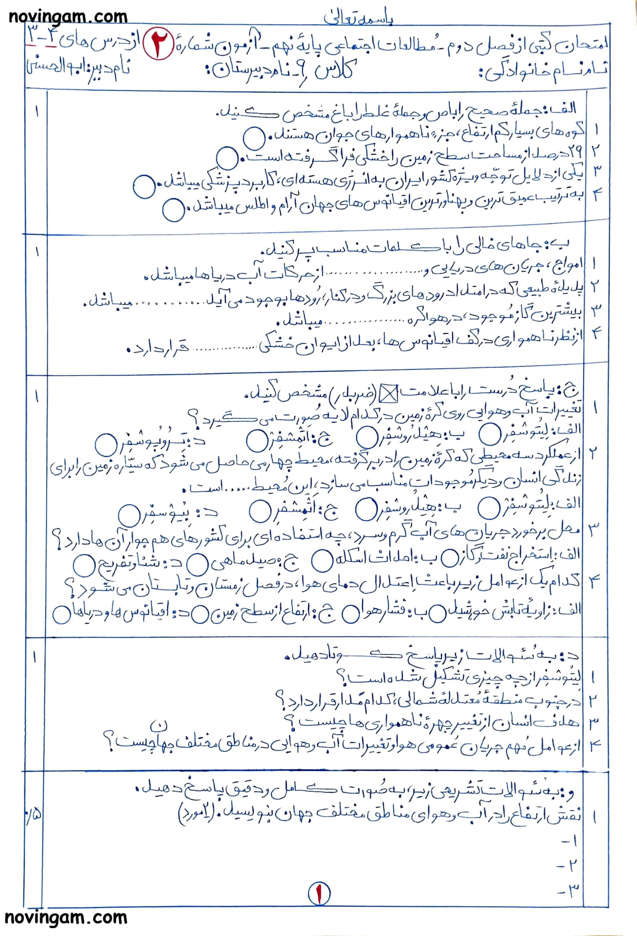 novingam.com
باسمه تعالی
امتحان کتبی از فصل دوم - مطالعات اجتماعی پایۀ نهم - آزمون شمارۀ ۲ از درس های ۴-۳
نام و نام خانوادگی: کلاس ۹ - نام دبیرستان: نام دبیر: ابوالحسنی
الف: جملۀ صحیح را با ص و جملۀ غلط را با غ مشخص کنید. ۱
۱ کوه های بسیار کم ارتفاع، جزء ناهمواری های جوان هستند.
۲ ۲۹ درصد از مساحت سطح زمین را خشکی فرا گرفته است.
۳ یکی از دلایل توجه ویژۀ کشور ایران به انرژی هسته ای، کاربرد پزشکی میباشد.
۴ به ترتیب عمیق ترین و پهناورترین اقیانوس های جهان آرام و اطلس میباشد.
ب: جاهای خالی را با کلمات مناسب پر کنید. ۱
۱ امواج، جریان های دریایی و .................. از حرکات آب دریاها میباشد.
۲ پدیدۀ طبیعی که در امتداد رودهای بزرگ و در کنار، رودها بوجود می آید .............. میباشد.
۳ بیشترین گاز موجود، در هوا کره .................. میباشد.
۴ از نظر ناهمواری در کف اقیانوس ها، بعد از ایوان خشکی .............. قرار دارد.
ج: پاسخ درست را با علامت ☒ (ضربدر) مشخص کنید. ۱
۱ تغییرات آب و هوایی روی کرۀ زمین در کدام لایه صورت می گیرد؟
الف: لیتوسفر ب: هیدروسفر ج: اتمسفر د: تروپوسفر
۲ از عملکرد سه محیطی که کرۀ زمین را در بر گرفته، محیط چهارمی حاصل می شود که سیاره زمین را برای
زندگی انسان و دیگر موجودات مناسب می سازد، این محیط ..... است.
الف: لیتوسفر ب: هیدروسفر ج: اتمسفر د: بیوسفر
۳ محل برخورد جریان های آب گرم و سرد، چه استفاده ای برای کشورهای هم جوار آن ها دارد؟
الف: استخراج نفت و گاز ب: احداث اسکله ج: صید ماهی د: شنا و تفریح
۴ کدام یک از عوامل زیر باعث اعتدال دمای هوا، در فصل زمستان و تابستان می شود؟
الف: زاویۀ تابش خورشید ب: فشار هوا ج: ارتفاع از سطح زمین د: اقیانوس ها و دریاها
د: به سئوالات زیر پاسخ کوتاه دهید. ۱
۱ لیتوسفر از چه چیزی تشکیل شده است؟
۲ در جنوب منطقۀ معتدلۀ شمالی، کدام مدار قرار دارد؟
۳ هدف انسان از تغییر چهرۀ ناهمواری ها چیست؟
۴ از عوامل مهم جریان عمومی هوا و تغییرات آب و هوایی در مناطق مختلف جهان چیست؟
و: به سئوالات تشریحی زیر، به صورت کامل و دقیق پاسخ دهید.
۱ نقش ارتفاع را در آب و هوای مناطق مختلف جهان بنویسید. (۲ مورد) ۰/۵
۱-
۲-
۳-
۱
novingam.com